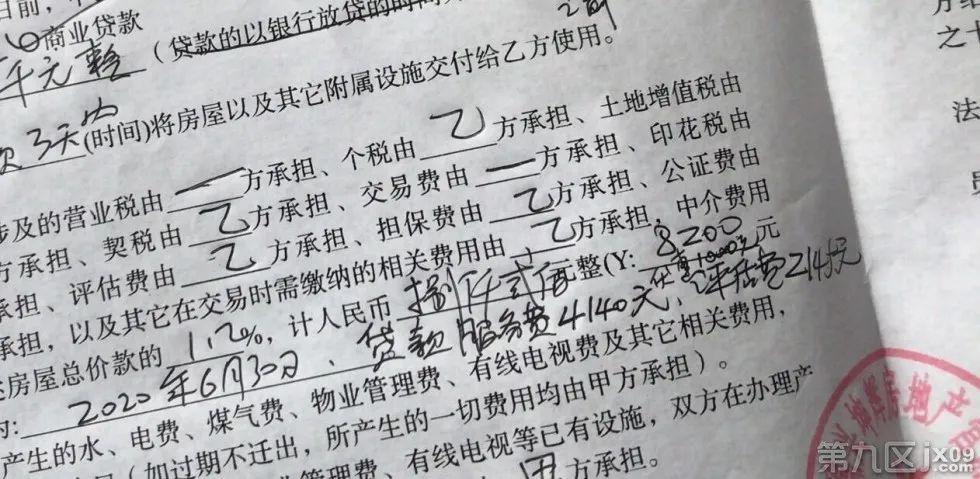 目前,
商业贷款
千元整 (贷款的以银行放贷的时间
之前
3天内 (时间)将房屋以及其它附属设施交付给乙方使用。
涉及的营业税由 一 方承担、个税由 乙 方承担、土地增值税由
方承担、契税由 乙 方承担、交易费由 一 方承担、印花税由
承担、评估费由 乙 方承担、担保费由 乙 方承担、公证费由
承担,以及其它在交易时需缴纳的相关费用由 乙 方承担,中介费用
房屋总价款的 1.2%,计人民币 捌仟贰佰 整(Y: 8200 元
2020年6月30日、贷款服务费4140元、评估费2145元
产生的水、电费、煤气费、物业管理费、有线电视费及其它相关费用,
(如过期不迁出,所产生的一切费用均由甲方承担)。
管理费、有线电视等已有设施,双方在办理产
甲 方承担。
之十
法
房地产
第九区jx09.com